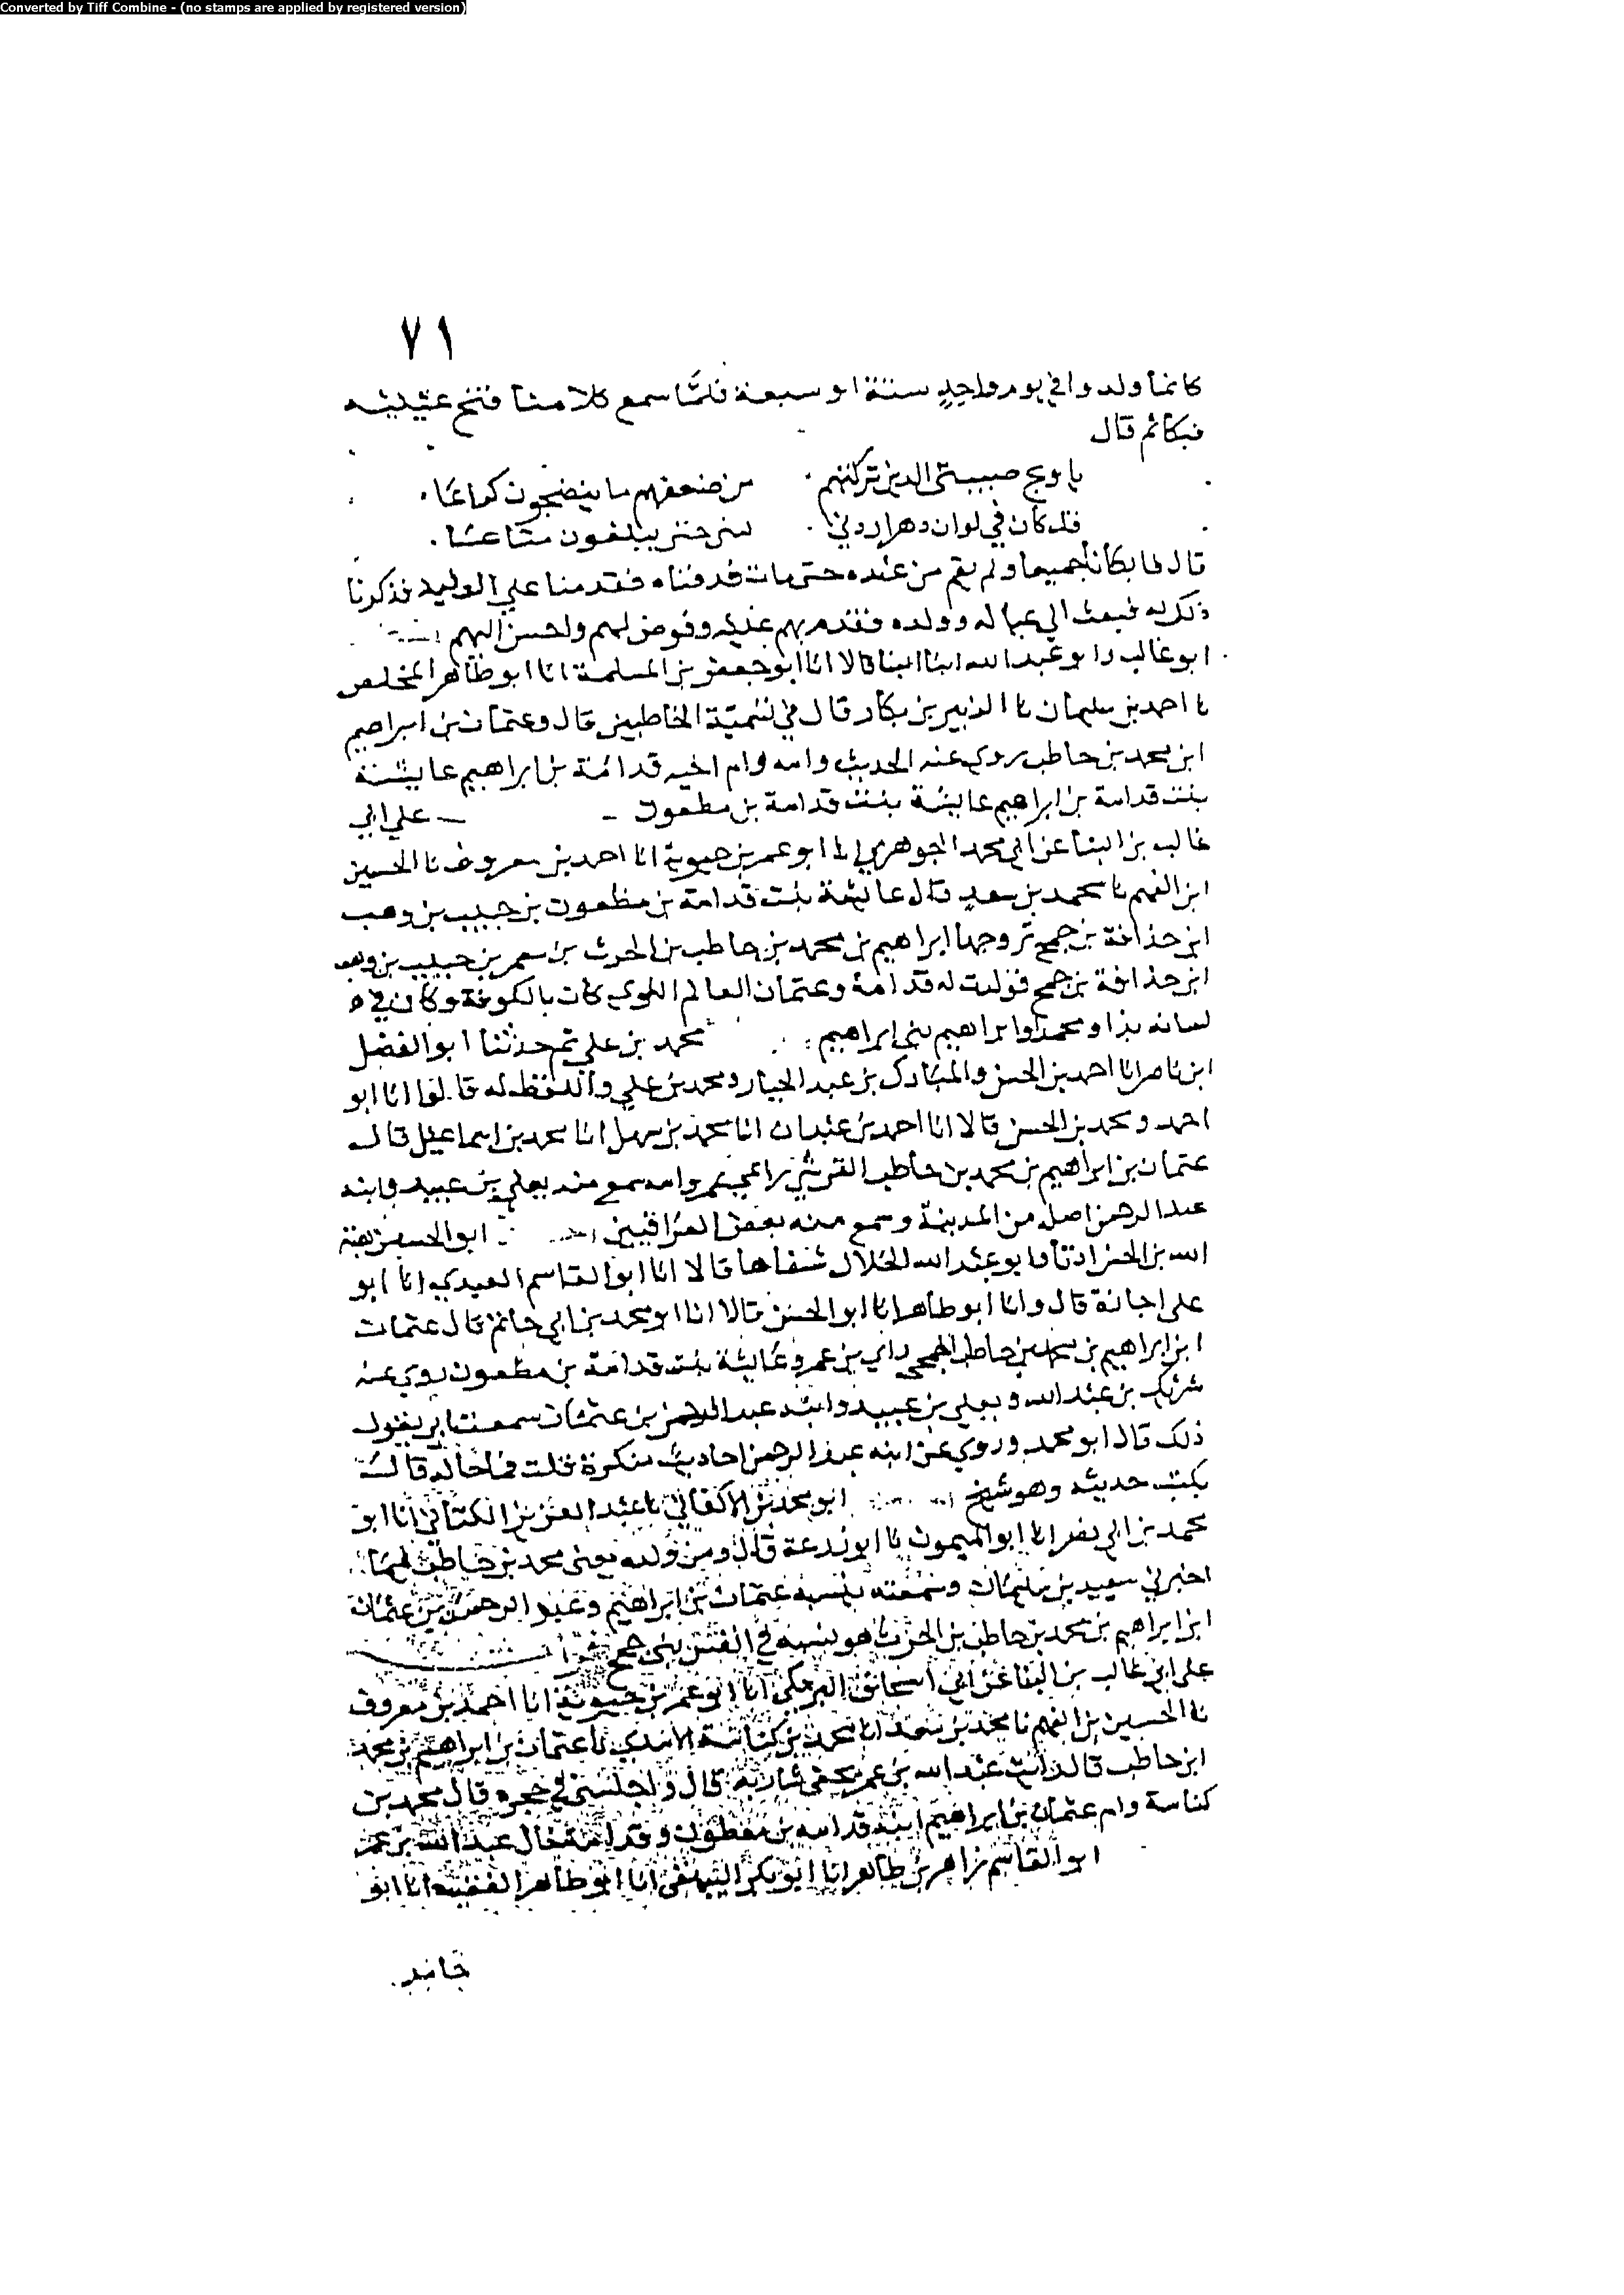 Converted by Tiff Combine - (no stamps are applied by registered version)
٧١
كانما ولدوا في يوم واحد ستة او سبعة فلما سمع كلامنا فتح عينيه
فبكا ثم قال
يا ويح صبيتي الذين تركتهم من ضعفهم ما ينضجون كراعا
قد كان في لو ان دهرا ردني لبني حتى يبلغون متاعا
قال فابكانا جميعا ولم يقم من عنده حتى مات فدفناه فقدمنا علي الوليد فذكرنا
ذلك له فبعث الي عياله وولده فقدم بهم عليه وفرض لهم واحسن اليهم
ابو غالب وابو عبد الله ابنا البنا قالا انا ابو جعفر بن المسلمة انا ابو طاهر المخلص
نا احمد بن سليمان نا الزبير بن بكار قال في تسمية الحاطبين قال وعثمان بن ابراهيم
ابن محمد بن حاطب روي عنه الحديث وامه وام اخيه قدامة بن ابراهيم عايشة
بنت قدامة بن ابراهيم عايشة بنت قدامة بن مظعون علي ابي
غالب بن البنا عن ابي محمد الجوهري انا ابو عمر بن حيوية انا احمد بن معروف نا الحسين
ابن الفهم نا محمد بن سعد قال عايشة بنت قدامة بن مظعون بن حبيب بن وهب
ابن حذافة بن جمح تزوجها ابراهيم بن محمد بن حاطب بن الحرث بن معمر بن حبيب بن وهب
ابن حذافة بن جمح فولدت له قدامة وعثمان العالم الذي كان بالكوفة وكان في
لسانه بذا ومحمدا وابراهيم بني ابراهيم محمد بن علي ثم حدثنا ابو الفضل
ابن ناصر انا احمد بن الحسن والمبارك بن عبد الجبار ومحمد بن علي واللفظ له قالوا انا ابو
احمد ومحمد بن الحسن قالا انا احمد بن عبدان انا محمد بن سهل انا محمد بن اسماعيل قال
عثمان بن ابراهيم بن محمد بن حاطب القرشي راي عمر وامه سمع منه يعلي بن عبيد وابنه
عبد الرحمن اصله من المدينة وسمع منه بعض العراقيين ابو الحسين هبة
الله بن الحسن اذنا وابو عبد الله الخلال شفاها قالا انا ابو القاسم العبدي انا ابو
علي اجازة قال وانا ابو طاهر انا ابو الحسن قالا انا ابو محمد بن ابي حاتم قال عثمان
ابن ابراهيم بن محمد بن حاطب الجمحي راي بن عمر وعايشة بنت قدامة بن مظعون روي عنه
شريك بن عبد الله ويعلي بن عبيد وابنه عبد الرحمن بن عثمان سمعت ابي يقول
ذلك قال ابو محمد وروي عن ابنه عبد الرحمن احاديث منكرة قلت فما حاله قال
يكتب حديثه وهو شيخ ابو محمد بن الاكفاني نا عبد العزيز الكتاني انا ابو
محمد بن ابي نصر انا ابو الميمون نا ابو زرعة قال ومن ولده يعني محمد بن حاطب
اخبرني سعيد بن سليمان وسمعته ينسبه عثمان بن ابراهيم وعبد الرحمن بن عثمان
ابن ابراهيم بن محمد بن حاطب بن الحرث هو نسبه في بني جمح
علي ابي غالب بن البنا عن ابي اسحاق البرمكي انا ابو عمر بن حيوية انا احمد بن معروف
نا الحسين بن الفهم نا محمد بن سعد انا محمد بن كناسة الاسدي نا عثمان بن ابراهيم بن محمد
ابن حاطب قال رايت عبد الله بن عمر يحفي شاربه قال واجلسني في حجره قال محمد بن
كناسة وام عثمان بن ابراهيم ابنة قدامه بن مظعون وقدامة خال عبد الله بن عمر
ابو القاسم زاهر بن طاهر انا ابو بكر البيهقي انا ابو طاهر الفقيه انا ابو
حامد